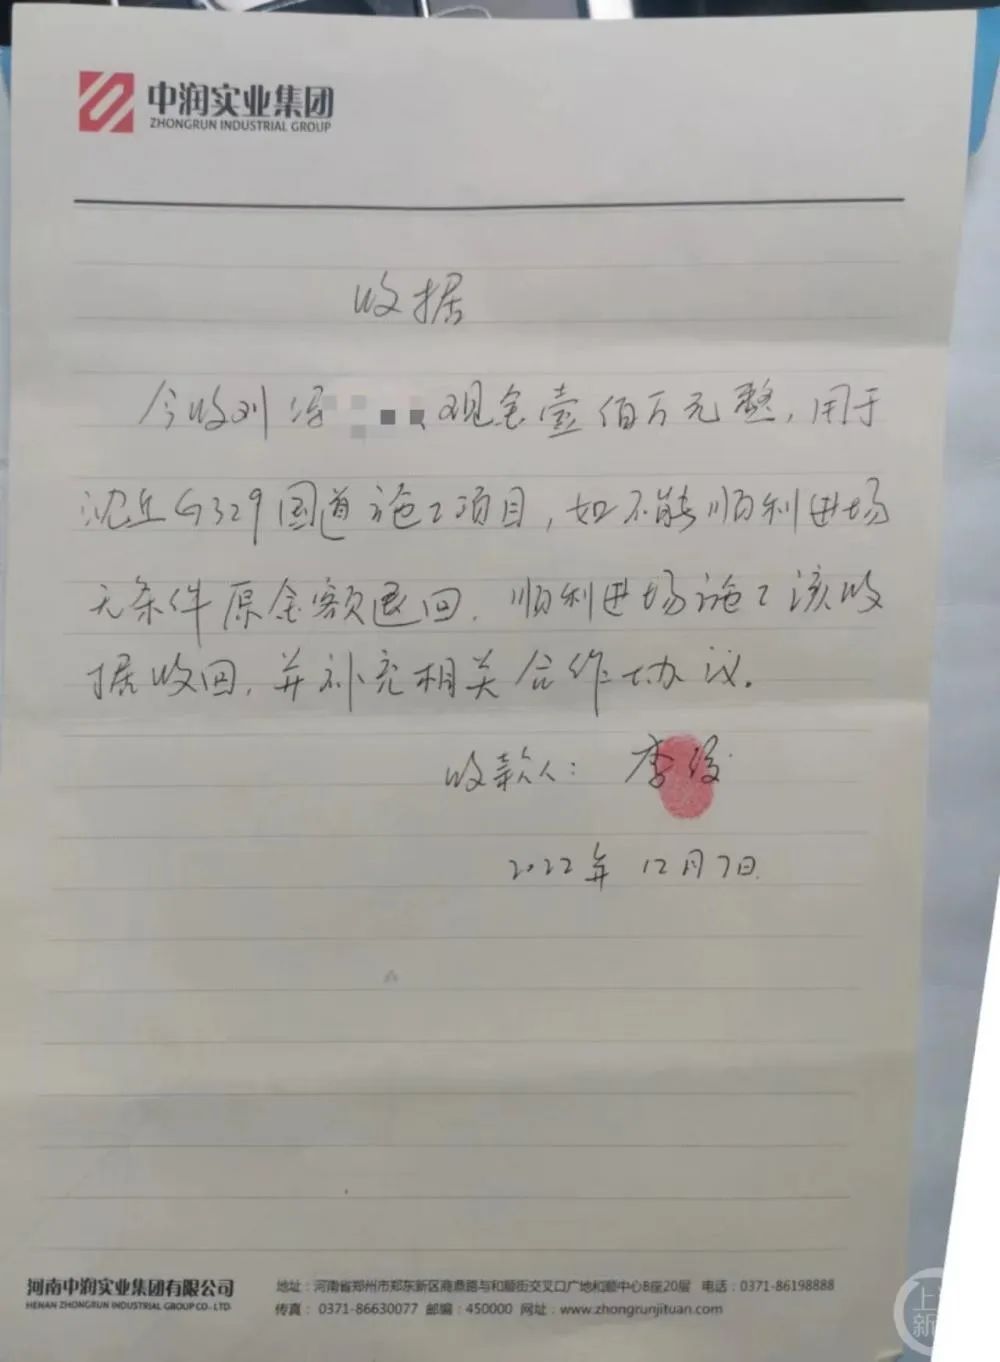 中润实业集团
ZHONGRUN INDUSTRIAL GROUP
收据
今收刘 现金壹佰万元整，用于
沈丘G329国道施工项目，如不能顺利进场
无条件原金额退回．顺利进场施工该收
据收回，并补充相关合作协议。
收款人：李俊
2022年12月7日
河南中润实业集团有限公司
HENAN ZHONGRUN INDUSTRIAL GROUP CO.LTD.
地址：河南省郑州市郑东新区商鼎路与和顺街交叉口广地和顺中心B座20层 电话：0371-86198888
传真：0371-86630077 邮编：450000 网址：www.zhongrunjituan.com
上
新